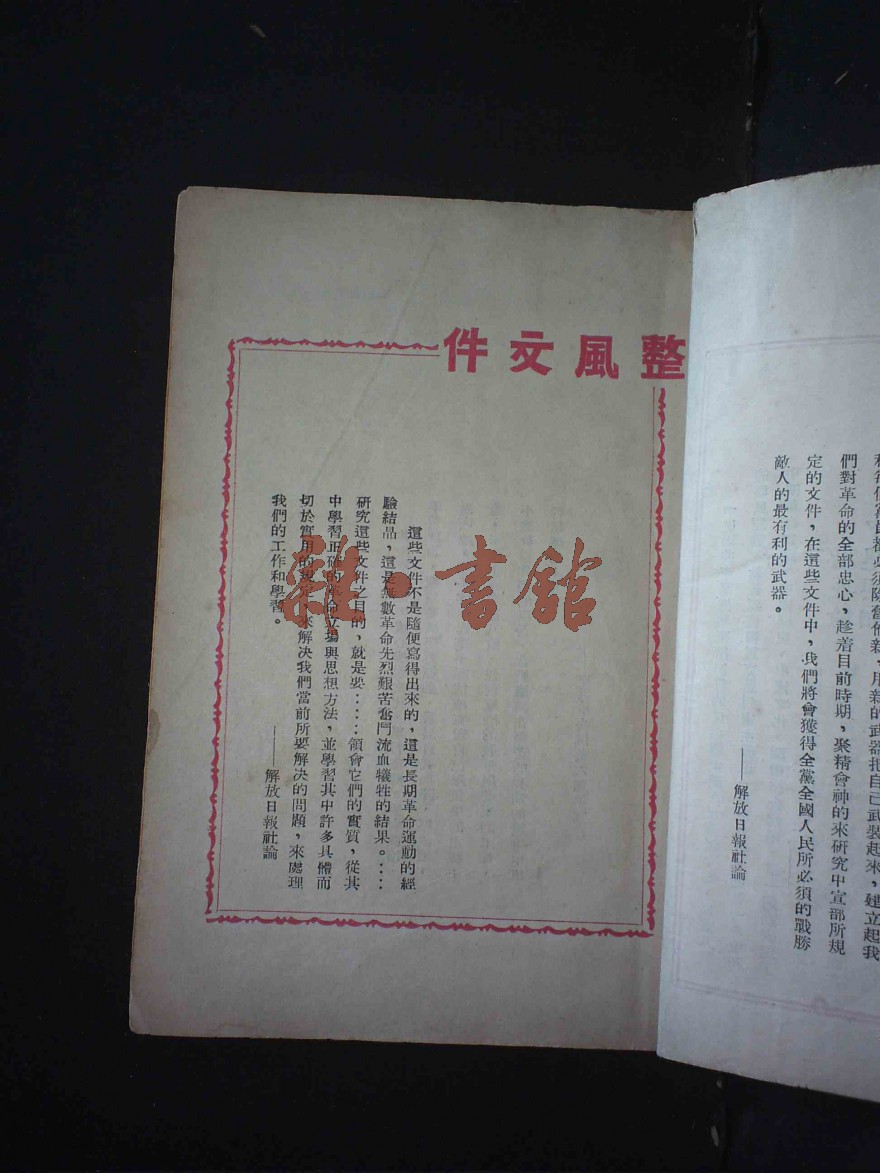 們對革命的全部忠心，趁着目前時期，聚精會神的來研究中宣部所規
定的文件，在這些文件中，我們將會獲得全黨全國人民所必須的戰勝
敵人的最有利的武器。
——解放日報社論
整風文件
這些文件不是隨便寫得出來的，這是長期革命運動的經
驗結晶，這是無數革命先烈艱苦奮鬥流血犧牲的結果。……
研究這些文件之目的，就是要……領會它們的實質，從其
中學習正確的革命立場與思想方法，並學習其中許多具體而
切於實用的規定，來解決我們當前所要解決的問題，來處理
我們的工作和學習。
——解放日報社論
雜·書館